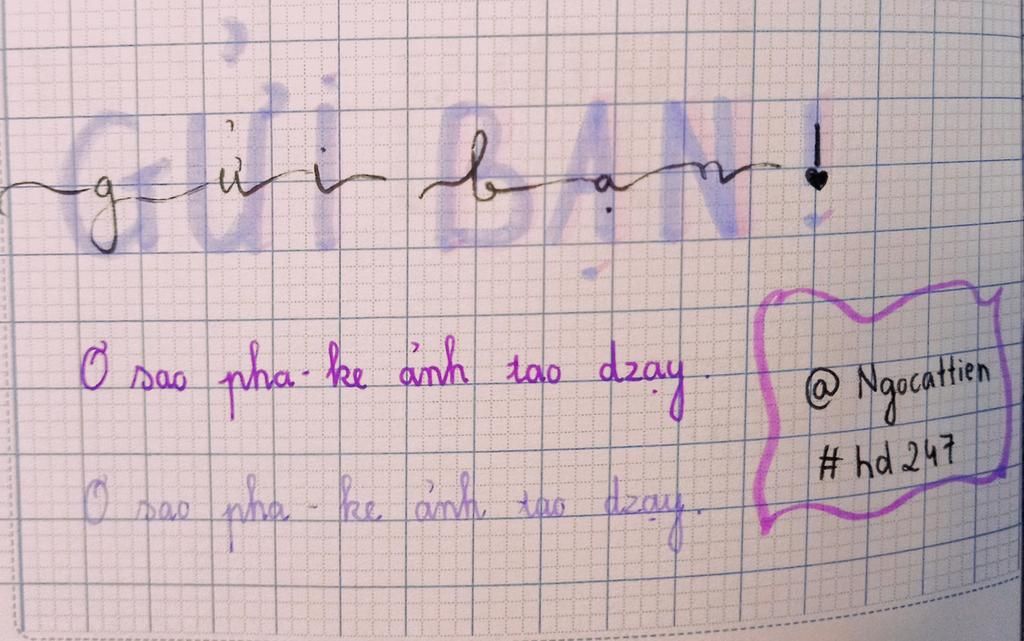 GỬI BẠN !
gửi bạn !
Ơ sao pha-ke ảnh tao dzạy.
Ơ sao pha-ke ảnh tao dzạy.
@ Ngocattien
# hd247